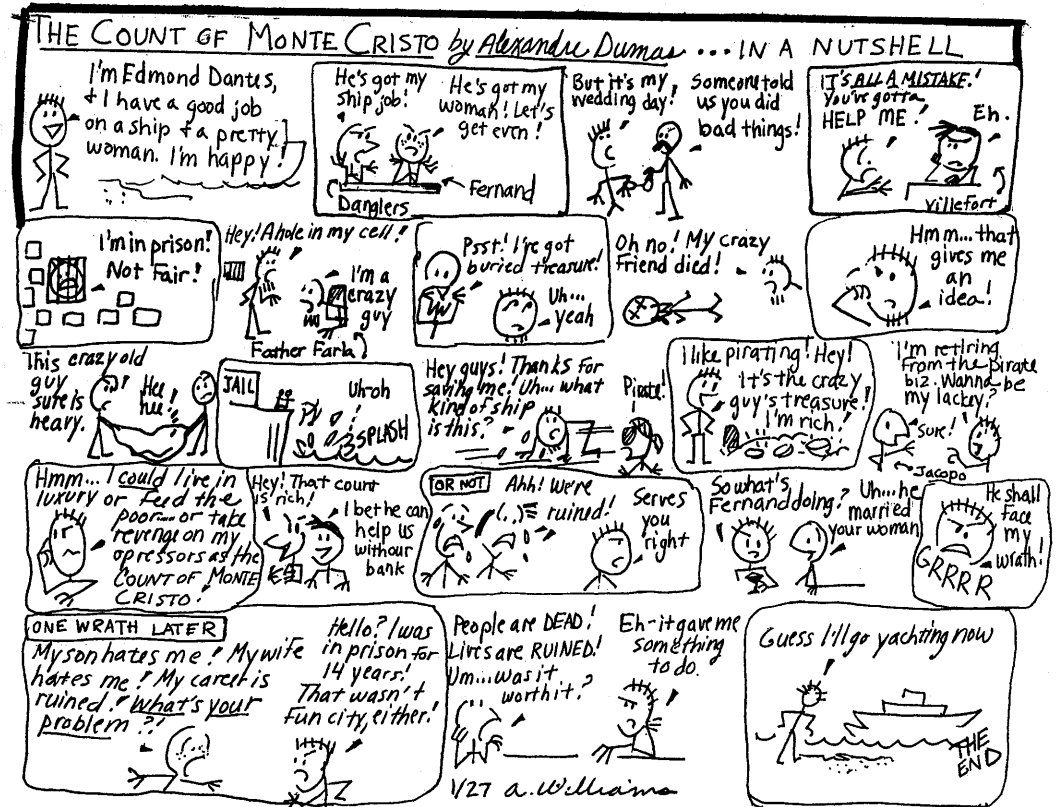 THE COUNT OF MONTE CRISTO by Alexandre Dumas ... IN A NUTSHELL
I'm Edmond Dantes,
& I have a good job
on a ship & a pretty
woman. I'm happy!
He's got my
ship job!
He's got my
woman! Let's
get even!
Fernand
Danglers
But it's my
wedding day!
Someone told
us you did
bad things!
IT'S ALL A MISTAKE!
You've gotta
HELP ME!
Eh.
Villefort
I'm in prison!
Not Fair!
Hey! A hole in my cell!
I'm a
crazy
guy
Father Farla
Psst! I've got
buried treasure!
Uh...
yeah
Oh no! My crazy
friend died!
Hmm...that
gives me
an
idea!
This crazy old
guy
sure is
heavy.
Hee
hee!
JAIL
Uh-oh
SPLASH
Hey guys! Thanks for
saving me! Uh... what
kind of ship
is this?
Pirate!
I like pirating! Hey!
It's the crazy
guy's treasure!
I'm rich!
I'm retiring
from the pirate
biz. Wanna be
my lackey?
Sure!
Jacopo
Hmm... I could live in
luxury or feed the
poor... or take
revenge on my
opressors as the
COUNT OF MONTE
CRISTO!
Hey! That count
is rich!
I bet he can
help us
with our
bank
OR NOT
Ahh! We're
ruined!
Serves
you
right
So what's
Fernand doing?
Uh...he
married
your woman
He shall
face
my
wrath!
GRRRR
ONE WRATH LATER
My son hates me! My wife
hates me! My career is
ruined! What's your
problem?!
Hello? I was
in prison for
14 years!
That wasn't
fun city, either!
People are DEAD!
Lives are RUINED!
Um...was it
worth it?
Eh-it gave me
something
to do.
Guess I'll go yachting now
THE
END
1/27 a.Williams